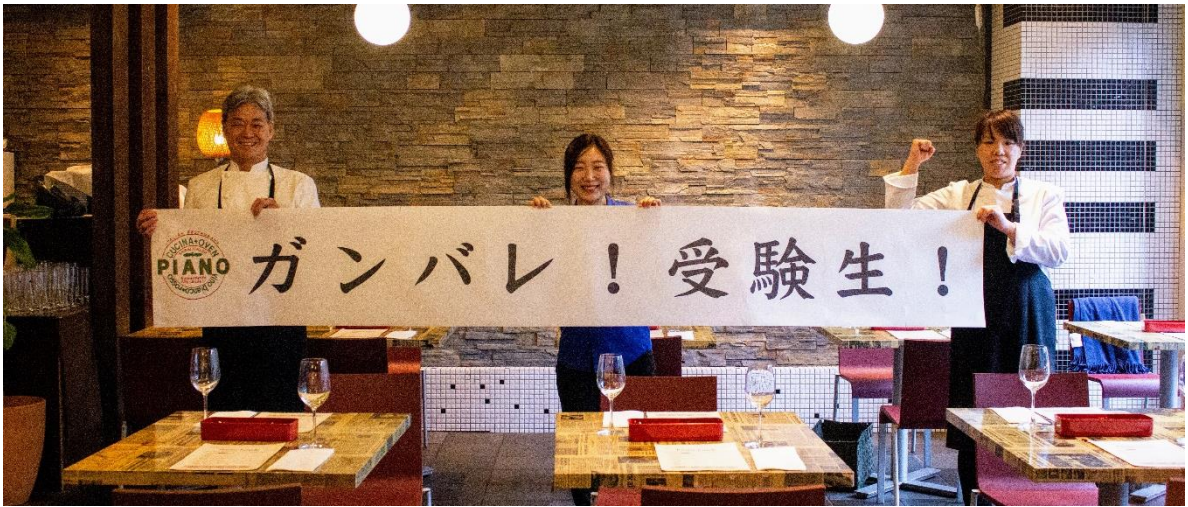 CUCINA+OVEN
PIANO
ガンバレ！受験生！